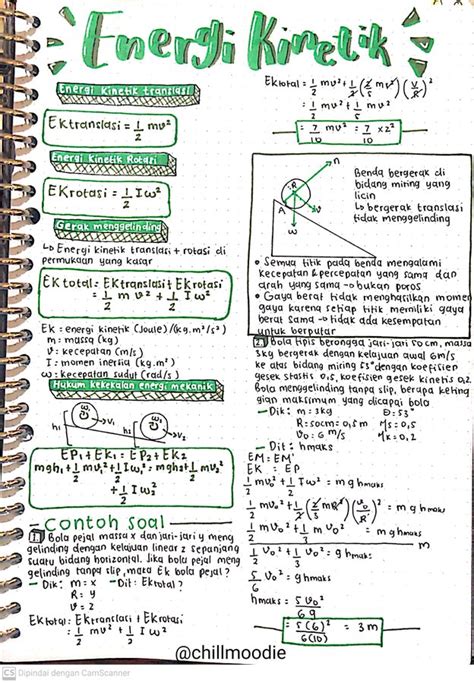 Energi Kinetik
Energi kinetik translasi
EKtranslasi = 1/2 mv²
Energi Kinetik Rotasi
EKrotasi = 1/2 Iω²
Gerak menggelinding
↳ Energi kinetik translasi + rotasi di
permukaan yang kasar
EKtotal = EKtranslasi + EKrotasi
= 1/2 m v² + 1/2 Iω²
EK = energi kinetik (Joule)/(kg.m²/s²)
m = massa (kg)
v = kecepatan (m/s)
I = momen inersia (kg.m²)
ω = kecepatan sudut (rad/s)
Hukum kekekalan energi mekanik
ω₁
v₁
h₁
ω₂
v₂
h₂
EP₁ + EK₁ = EP₂ + EK₂
mgh₁ + 1/2 mv₁² + 1/2 Iω₁² = mgh₂ + 1/2 mv₂²
+ 1/2 Iω₂²
Contoh soal
1. Bola pejal massa x dan jari-jari y meng
gelinding dengan kelajuan linear z sepanjang
suatu bidang horizontal. Jika bola pejal meng
gelinding tanpa slip, maka EK bola pejal?
— Dik: m = x — Dit: EKtotal?
R = y
v = z
EKtotal = EKtranslasi + EKrotasi
= 1/2 mv² + 1/2 Iω²
EKtotal = 1/2 mv² + 1/2 (2/5 mr²)(v/R)²
= 1/2 mv² + 1/5 mv²
= 7/10 mv² = 7/10 xz²
n
R
A
v
w
Benda bergerak di
bidang miring yang
licin
↳ bergerak translasi
tidak menggelinding
• Semua titik pada benda mengalami
kecepatan & percepatan yang sama dan
arah yang sama → bukan poros
• Gaya berat tidak menghasilkan momen
gaya karena setiap titik memiliki gaya
berat sama → tidak ada kesempatan
untuk berputar
2. Bola tipis berongga jari-jari 50 cm, massa
3kg bergerak dengan kelajuan awal 6m/s
ke atas bidang miring 53° dengan koefisien
gesek statis 0,5, koefisien gesek kinetis 0,2.
Bola menggelinding tanpa slip, berapa keting
gian maksimum yang dicapai bola
— Dik: m = 3kg Θ = 53°
R = 50cm = 0,5m μs = 0,5
v₀ = 6 m/s μk = 0,2
— Dit: hmaks
EM = EM'
EK = EP
1/2 mv² + 1/2 Iω² = m g hmaks
1/2 mv₀² + 1/2 (2/3 mR²)(v₀/R)² = m g hmaks
1/2 mv₀² + 1/3 m v₀² = m g hmaks
m
1/2 v₀² + 1/3 v₀² = g hmaks
5/6 v₀² = g hmaks
hmaks = 5 v₀²/6g
= 5(6)²/6(10) = 3 m
@chillmoodie
CS Dipindai dengan CamScanner